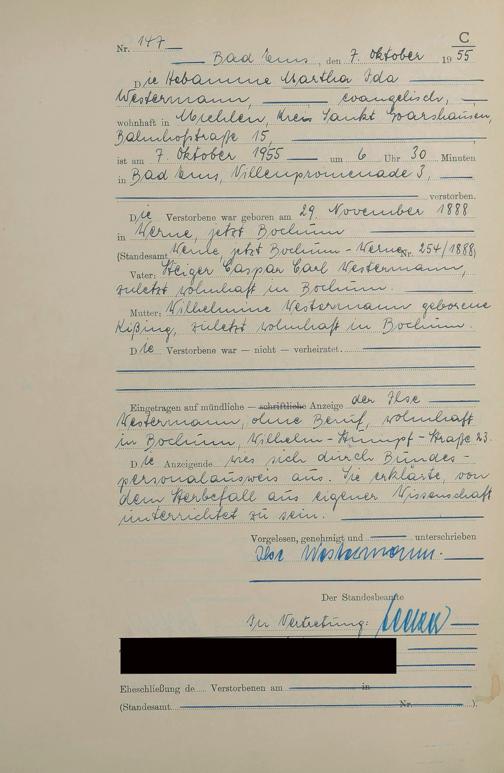 C
Nr. 147
Bad Ems, den 7. Oktober 1955
Die Hebamme Martha Ida
Westermann, evangelisch,
wohnhaft in Miehlen, Kreis Sankt Goarshausen,
Bahnhofstraße 15
ist am 7. Oktober 1955 um 6 Uhr 30 Minuten
in Bad Ems, Villenpromenade 3,
verstorben.
Die Verstorbene war geboren am 29. November 1888
in Werne, jetzt Bochum
(Standesamt Werne jetzt Bochum-Werne Nr. 254/1888)
Vater: Steiger Caspar Carl Westermann,
zuletzt wohnhaft in Bochum.
Mutter: Wilhelmine Westermann geborene
Kißing, zuletzt wohnhaft in Bochum.
Die Verstorbene war — nicht — verheiratet.
Eingetragen auf mündliche — schriftliche — Anzeige der Ilse
Westermann, ohne Beruf, wohnhaft
in Bochum, Wilhelm-Stumpf-Straße 23.
Die Anzeigende wies sich durch Bundes-
personalausweis aus. Sie erklärte, von
dem Sterbefall aus eigener Wissenschaft
unterrichtet zu sein.
Vorgelesen, genehmigt und unterschrieben
Ilse Westermann.
Der Standesbeamte
In Vertretung:
Eheschließung de Verstorbenen am in
(Standesamt Nr. ).